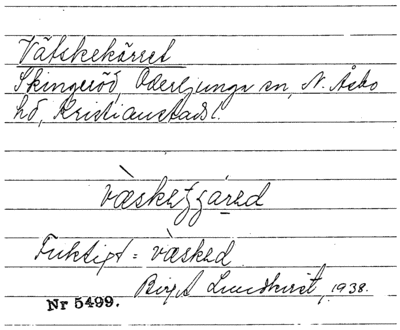 Vätskekärret
Skingeröd, Oderljunga sn, N. Åsbo
hd, Kristianstads l.
Fuktigt = väsked
Birgit Lundkvist, 1938.
Nr 5499.